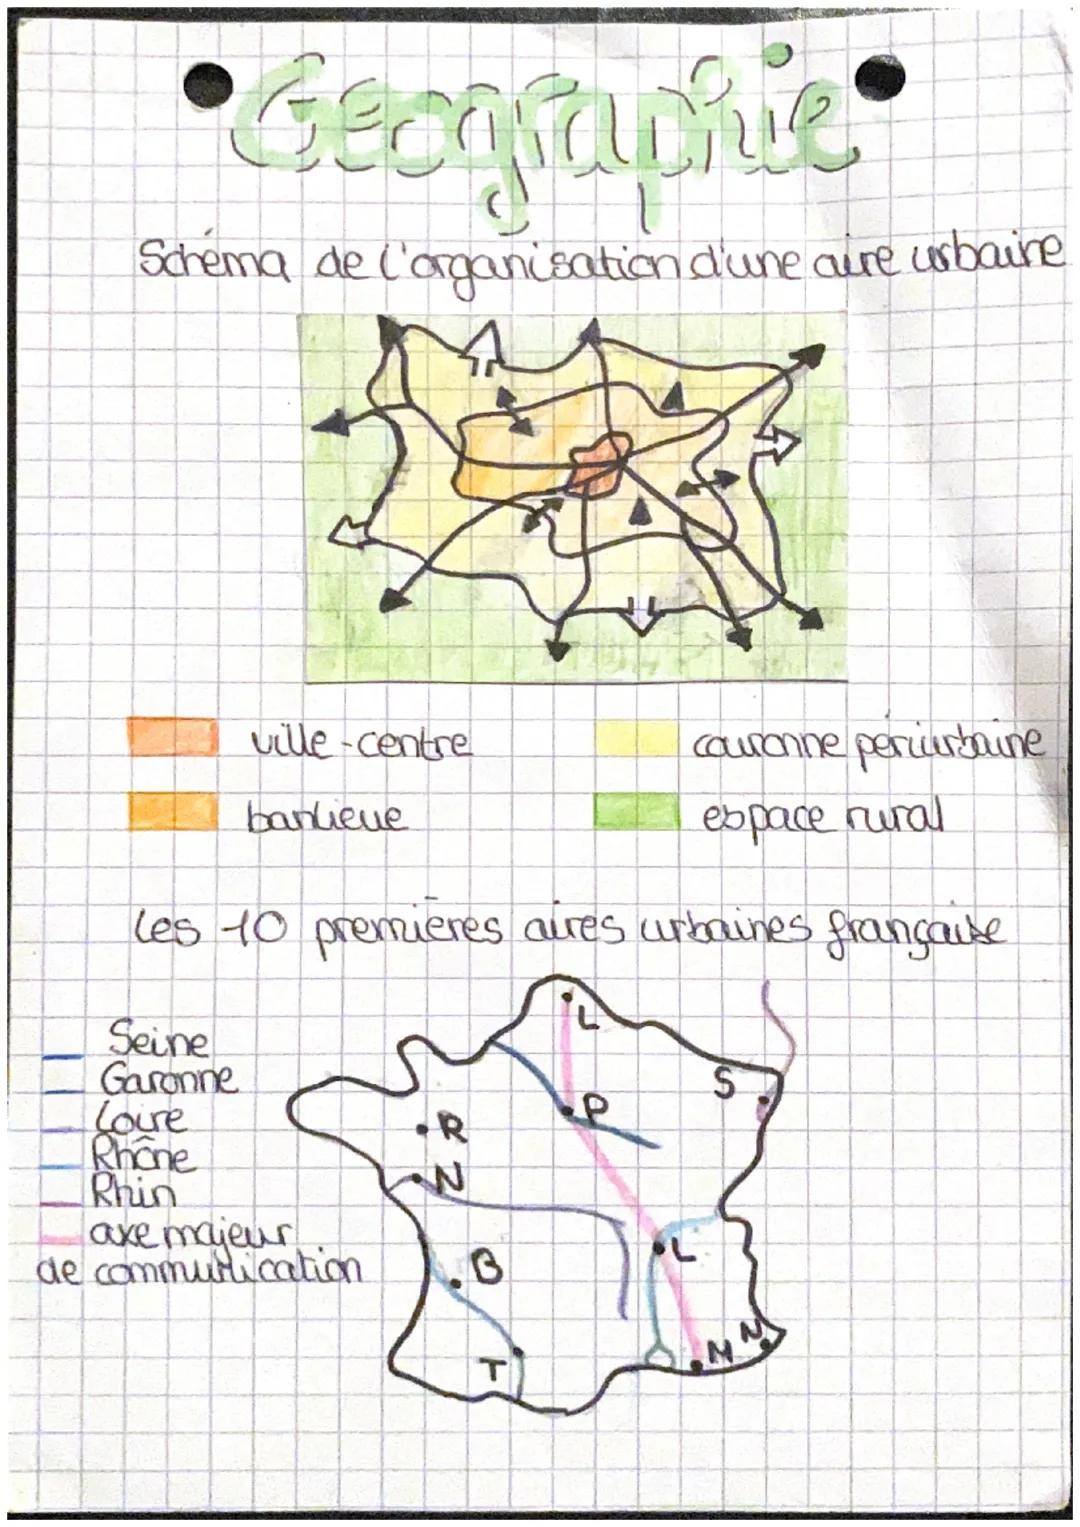 Géographie
Schéma de l'organisation d'une aire urbaine
ville-centre
couronne périurbaine
banlieue
espace rural
Les 10 premières aires urbaines française
Seine
Garonne
Loire
Rhône
Rhin
axe majeur
de communication
L
S
P
R
N
L
B
N
M
T